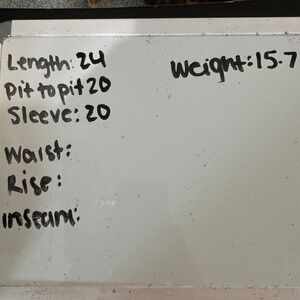 Length: 24
Weight: 15.7
Pit to pit 20
Sleeve: 20
Waist:
Rise:
inseam: